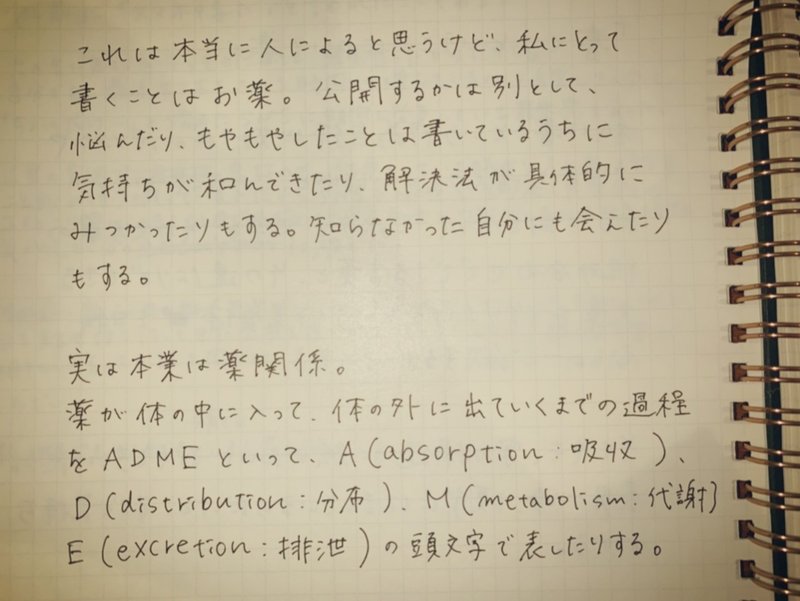 これは本当に人によると思うけど、私にとって
書くことはお薬。公開するかは別として、
悩んだり、もやもやしたことは書いているうちに
気持ちが和んできたり、解決法が具体的に
みつかったりもする。知らなかった自分にも会えたり
もする。
実は本業は薬関係。
薬が体の中に入って、体の外に出ていくまでの過程
をADMEといって、A(absorption:吸収)、
D(distribution:分布)、M(metabolism:代謝)
E(excretion:排泄)の頭文字で表したりする。